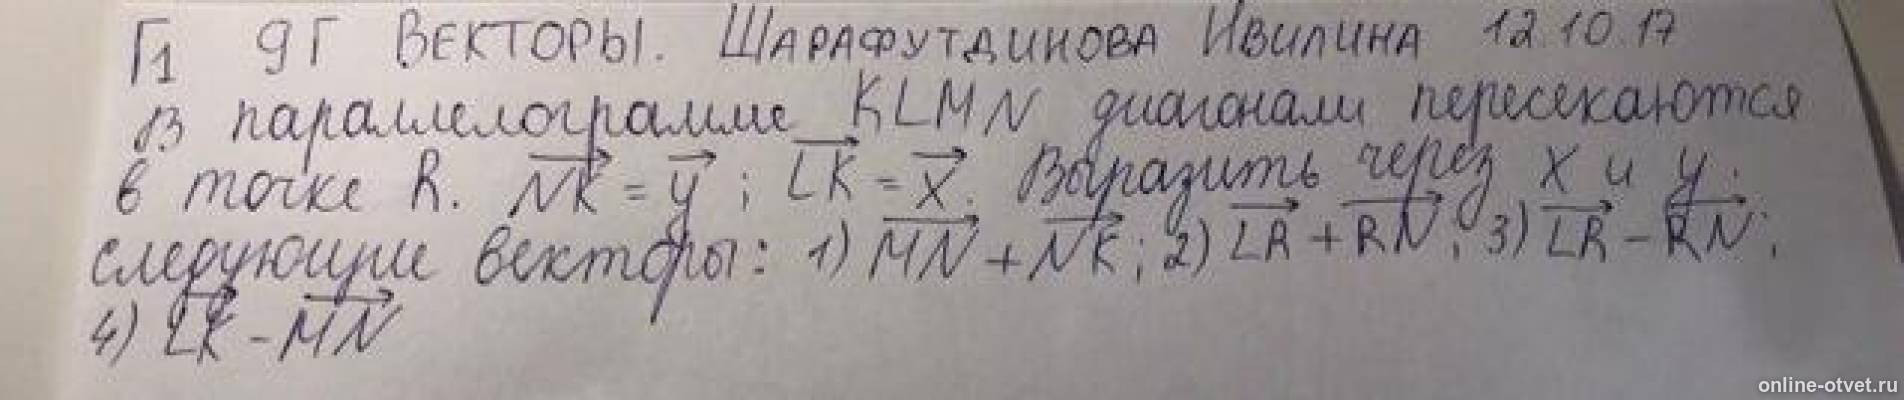 Г1 9Г ВЕКТОРЫ. ШАРАФУТДИНОВА ИВИЛИНА 12.10.17
В параллелограмме KLMN диагонали пересекаются
в точке R. NK = y ; LK = x. Выразить через x и y
следующие векторы: 1) MN + NK ; 2) LR + RN ; 3) LR - RN ;
4) LK - MN
online-otvet.ru